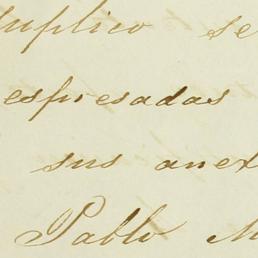 suplico se
espresadas
sus anex
Pablo M